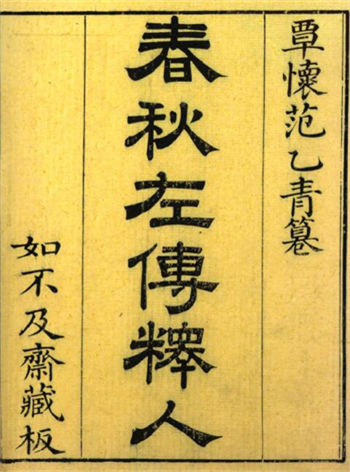 覃懷范乙青纂
春秋左傳釋人
如不及齋藏板